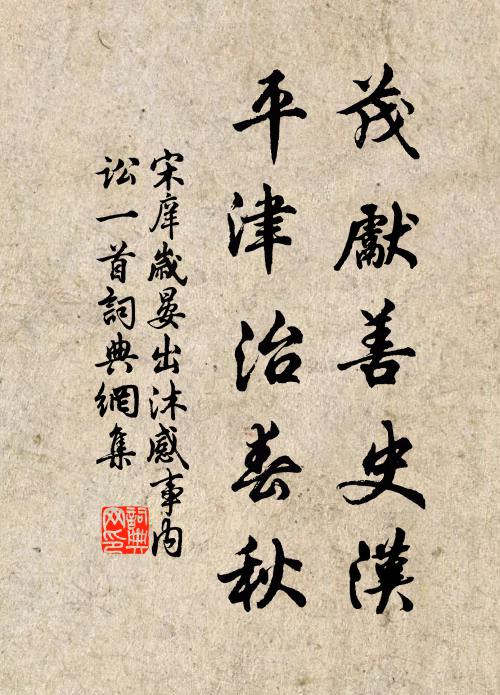 茂獻善史漢
平津治春秋
宋庠歲晏出沐感事內
訟一首詞典網集
詞典
网